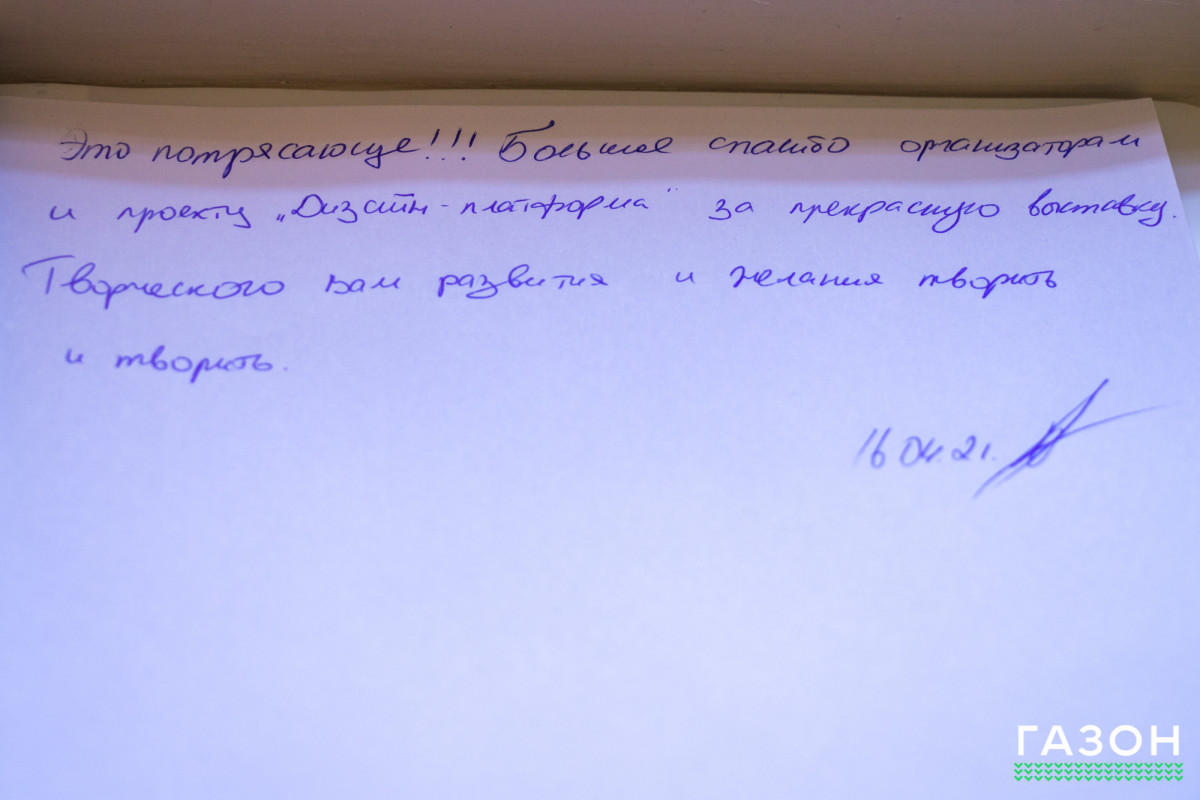 Это потрясающе!!! Большое спасибо организаторам
и проекту „Дизайн-платформа" за прекрасную выставку.
Творческого вам развития и желания творить
и творить.
16.04.21.
ГАЗОН